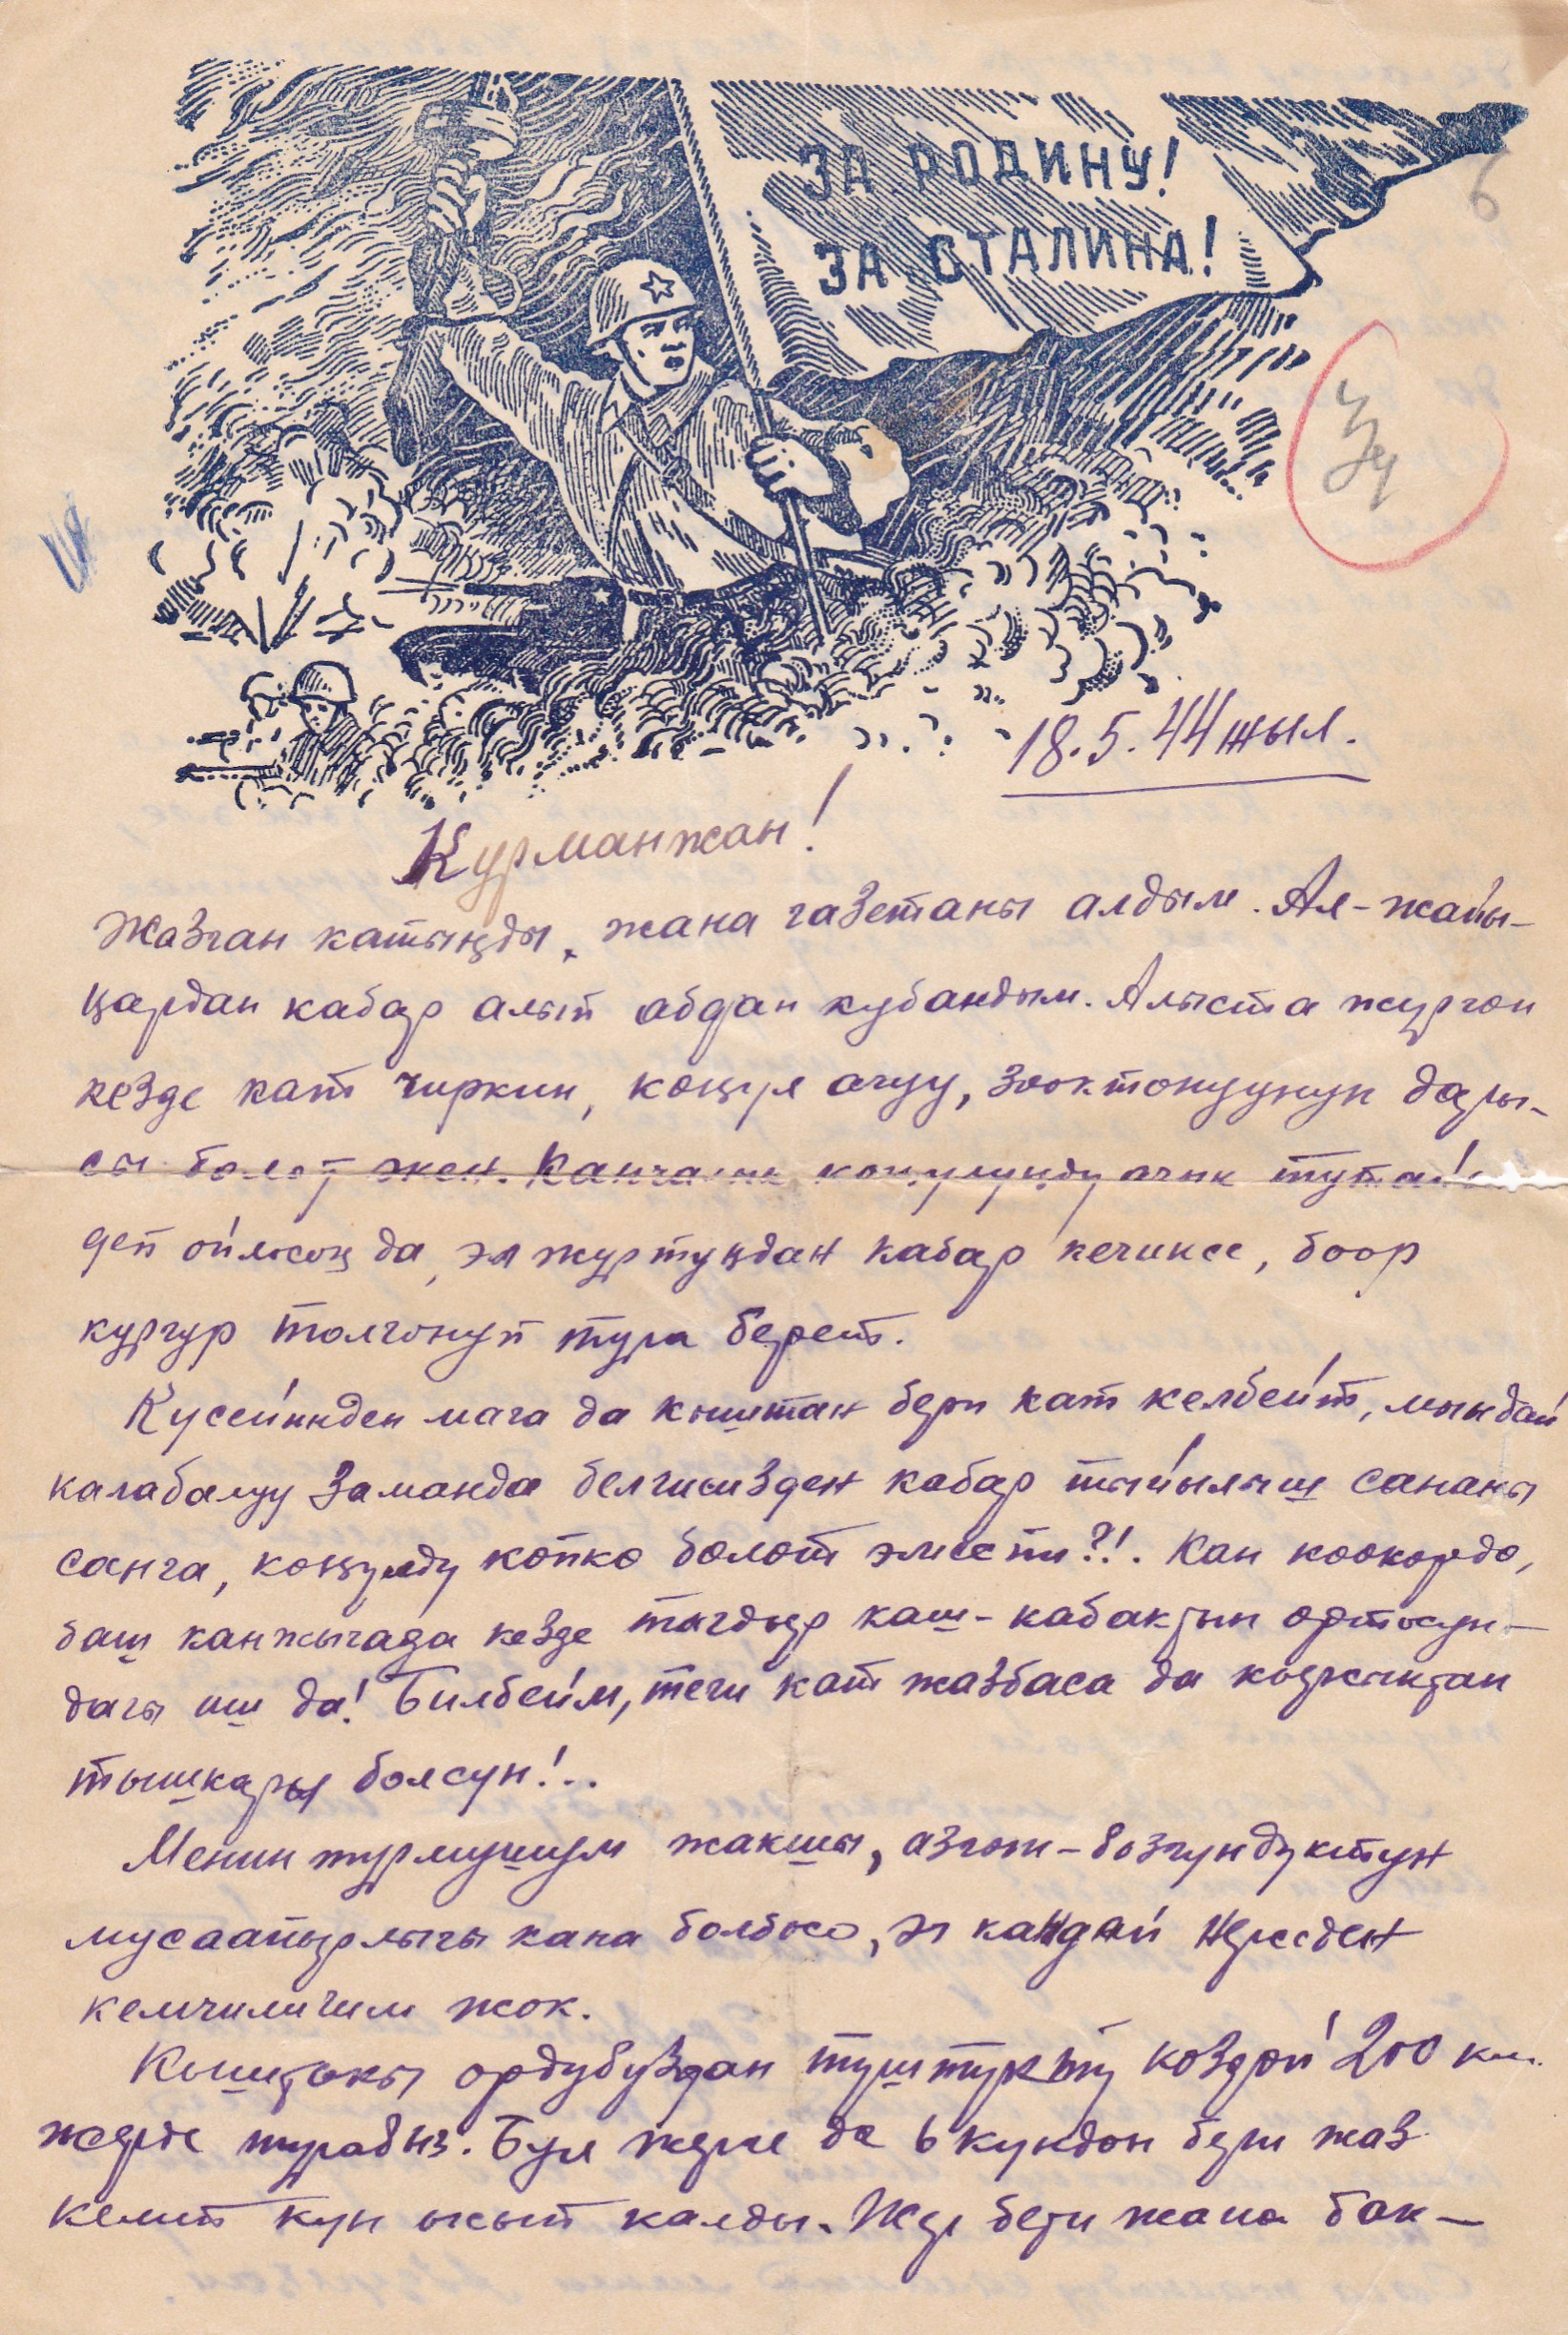 ЗА РОДИНУ!
ЗА СТАЛИНА!
6
18.5.44 жыл.
Курманжан!
Жазган катыңды, жана газетаны алдым. Ал-жайы-
ңардан кабар алып абдан кубандым. Алыста жүргөн
кезде кат чиркин, көңүл ачуу, зооктонуунун дары-
сы болот экен. Канчалык көңүлүңдү ачык тутайын
деп ойлосоң да, эл жүртүңдан кабар кечиксе, боор
күргүр толгонуп тура берет.
Күсейинден мага да кыштан бери кат келбейт, мындай
калабалуу заманда белгисизден кабар тыйылыш сананы
санга, көңүлдү көпкө бөлөт эмеспи?!. Кан көөкөрдө,
баш канжыгада кезде тагдыр каш-кабактын ортосун-
дагы иш да! Билбейм, теги кат жазбаса да коркунчтан
тышкары болсун!..
Менин турмушум жакшы, азгын-бозгундуктун
мусаапырлыгы кана болбосо, эч кандай нерседен
кемчилигим жок.
Кыштакы ордубуздан түштүктү көздөй 200 км.
жерде турабыз. Бул жерге де 6 күндөн бери жаз
келип күн ысып калды. Жер бети жана бак-